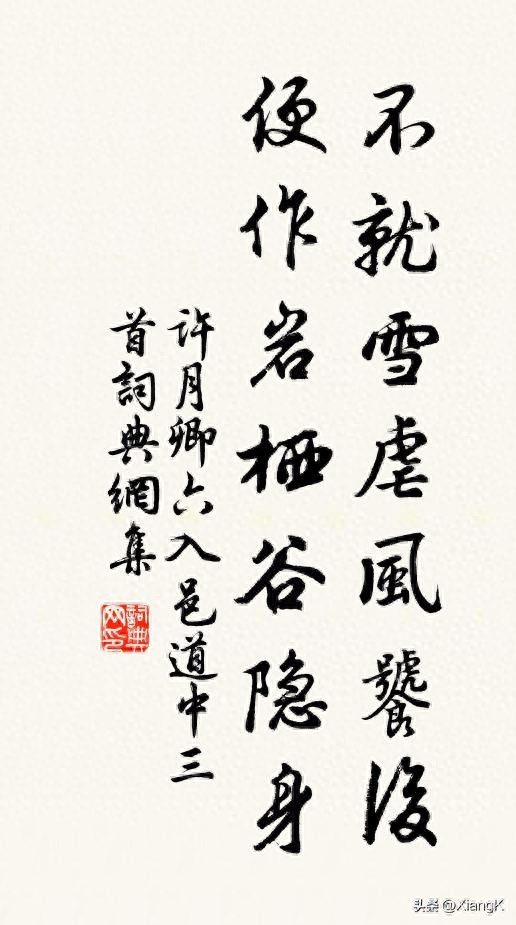 不就雪虐風饕後
便作岩栖谷隐身
許月卿六入邑道中三
首詞典網集
詞典网印
头条 @XiangK